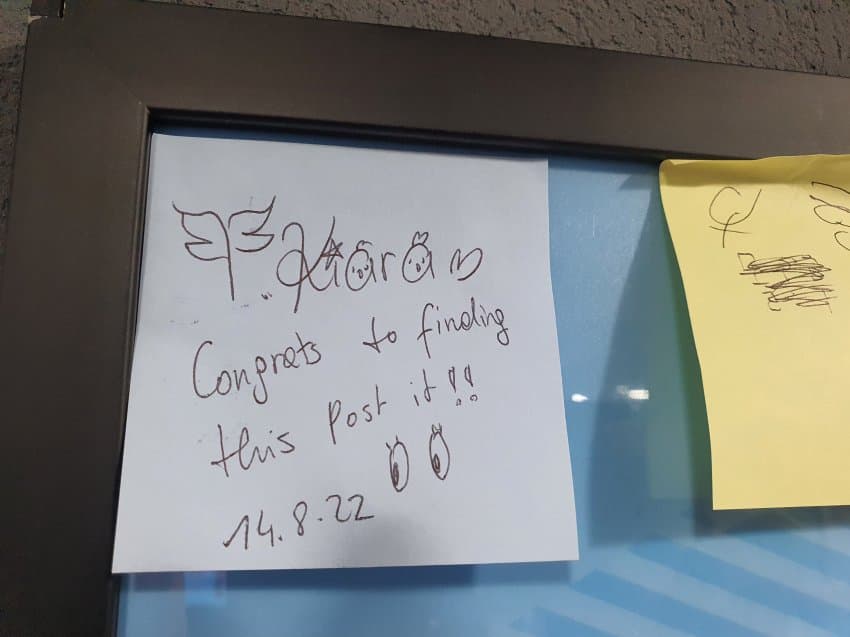 T. Kiara
Congrats to finding
this Post it!!
14.8.22